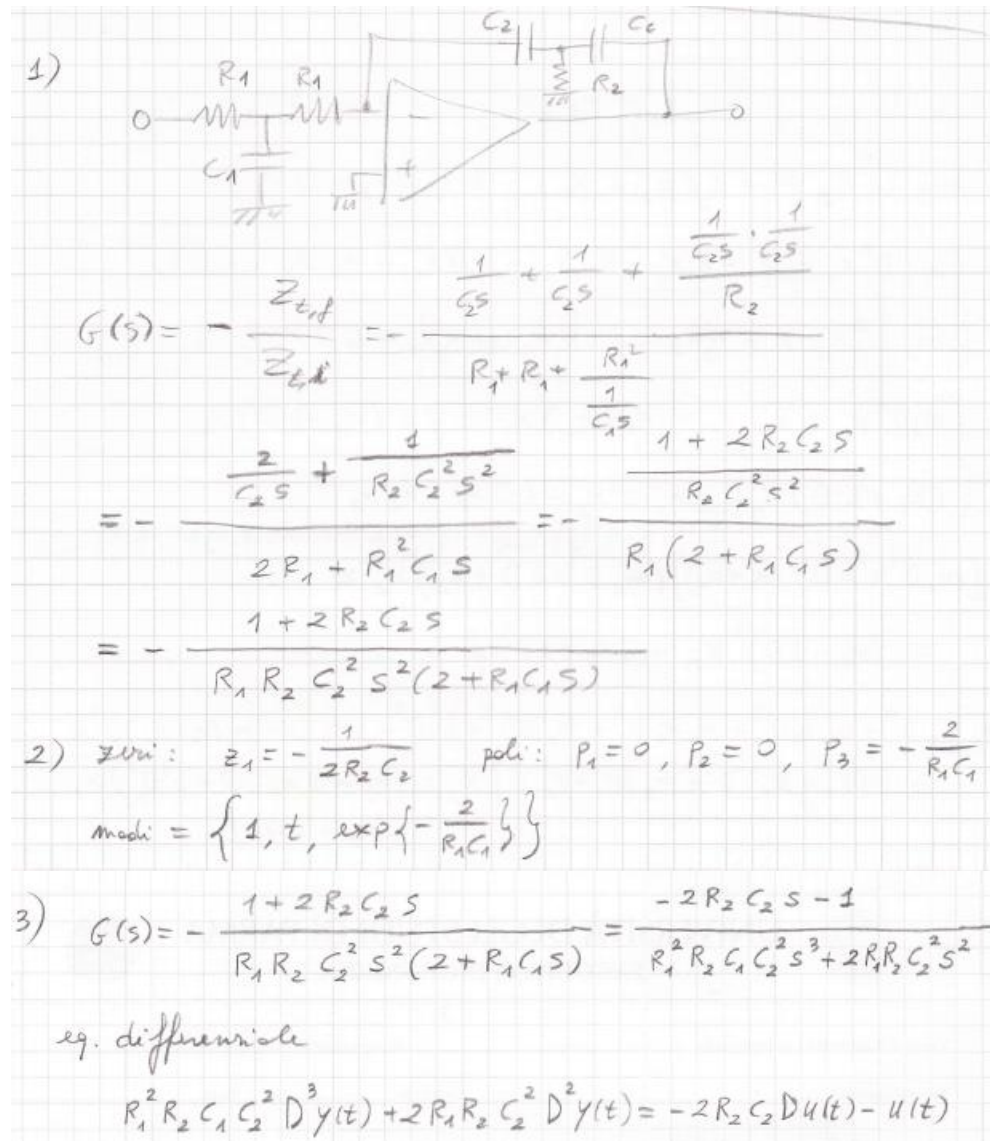 1)
C2 C2
R1 R1 R2
C1
− +
G(s) = - Z_{t,f} / Z_{t,i} = - (1/(C2 s) + 1/(C2 s) + (1/(C2 s) · 1/(C2 s))/R2) / (R1 + R1 + R1^2/(1/(C1 s)))
= - (2/(C2 s) + 1/(R2 C2^2 s^2)) / (2 R1 + R1^2 C1 s) = - ((1 + 2 R2 C2 s)/(R2 C2^2 s^2)) / (R1 (2 + R1 C1 s))
= - (1 + 2 R2 C2 s) / (R1 R2 C2^2 s^2 (2 + R1 C1 s))
2) zeri: z1 = - 1/(2 R2 C2) poli: P1 = 0, P2 = 0, P3 = - 2/(R1 C1)
modi = {1, t, exp{- 2/(R1 C1)}}
3) G(s) = - (1 + 2 R2 C2 s) / (R1 R2 C2^2 s^2 (2 + R1 C1 s)) = (-2 R2 C2 s - 1) / (R1^2 R2 C1 C2^2 s^3 + 2 R1 R2 C2^2 s^2)
eq. differenziale
R1^2 R2 C1 C2^2 D^3 y(t) + 2 R1 R2 C2^2 D^2 y(t) = -2 R2 C2 D u(t) - u(t)